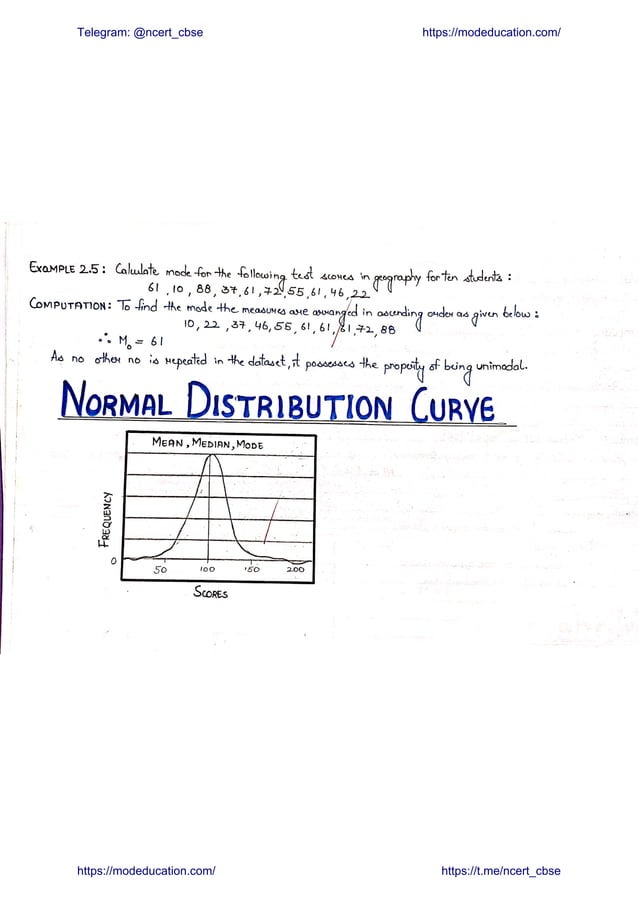 Telegram: @ncert_cbse https://modeducation.com/
EXAMPLE 2.5: Calculate mode for the following test scores in geography for ten students :
61, 10, 88, 37, 61, 72, 55, 61, 46, 22
COMPUTATION: To find the mode the measures are arranged in ascending order as given below :
10, 22, 37, 46, 55, 61, 61, 61, 72, 88
∴ Mo = 61
As no other no is repeated in the dataset, it possesses the property of being unimodal.
NORMAL DISTRIBUTION CURVE
MEAN, MEDIAN, MODE
FREQUENCY
0
50 100 150 200
SCORES
https://modeducation.com/ https://t.me/ncert_cbse